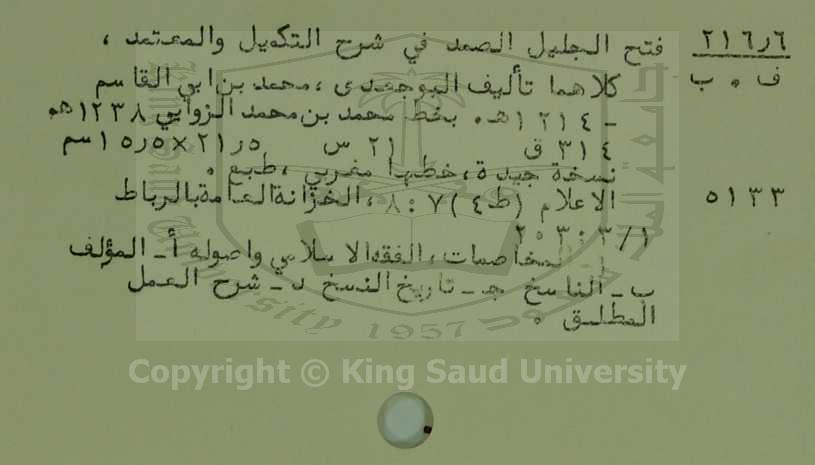 ٢١٦٫٦ فتح الجليل الصمد في شرح التكميل والمعتمد ،
ف ٠ ب كلاهما تأليف البوجعدى ، محمد بن ابي القاسم
- ١٢١٤هـ ٠ بخط محمد بن محمد الزوايي ١٢٣٨هـ ٠
٣١٤ ق ٢١ س ٢١٫٥×١٥٫٥سم
نسخة جيدة ، خطها مغربي ، طبع ٠
٥١٣٣ الاعلام (ط٤) ٧ : ٨ ، الخزانة العامة بالرباط
١/٣ : ٢٠٣
المخاصمات ، الفقه الاسلامي واصوله أ ـ المؤلف
ب ـ الناسخ جـ ـ تاريخ النسخ د ـ شرح العمل
المطلق ٠
1957
Copyright © King Saud University